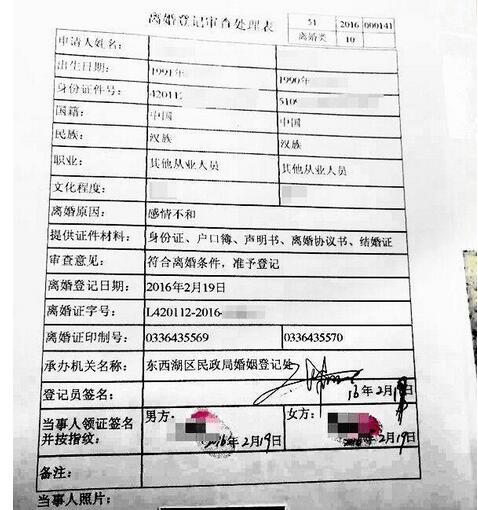 离婚登记审查处理表
51 2016 000141
离婚类 10
申请人姓名:
出生日期: 1991年 1990年
身份证件号: 420112 5109
国籍: 中国 中国
民族: 汉族 汉族
职业: 其他从业人员 其他从业人员
文化程度:
离婚原因: 感情不和
提供证件材料: 身份证、户口簿、声明书、离婚协议书、结婚证
审查意见: 符合离婚条件，准予登记
离婚登记日期: 2016年2月19日
离婚证字号: L420112-2016-
离婚证印制号: 0336435569 0336435570
承办机关名称: 东西湖区民政局婚姻登记处
登记员签名: 16年2月19日
当事人领证签名并按指纹: 男方: 2016年2月19日 女方: 2016年2月19日
备注:
当事人照片: